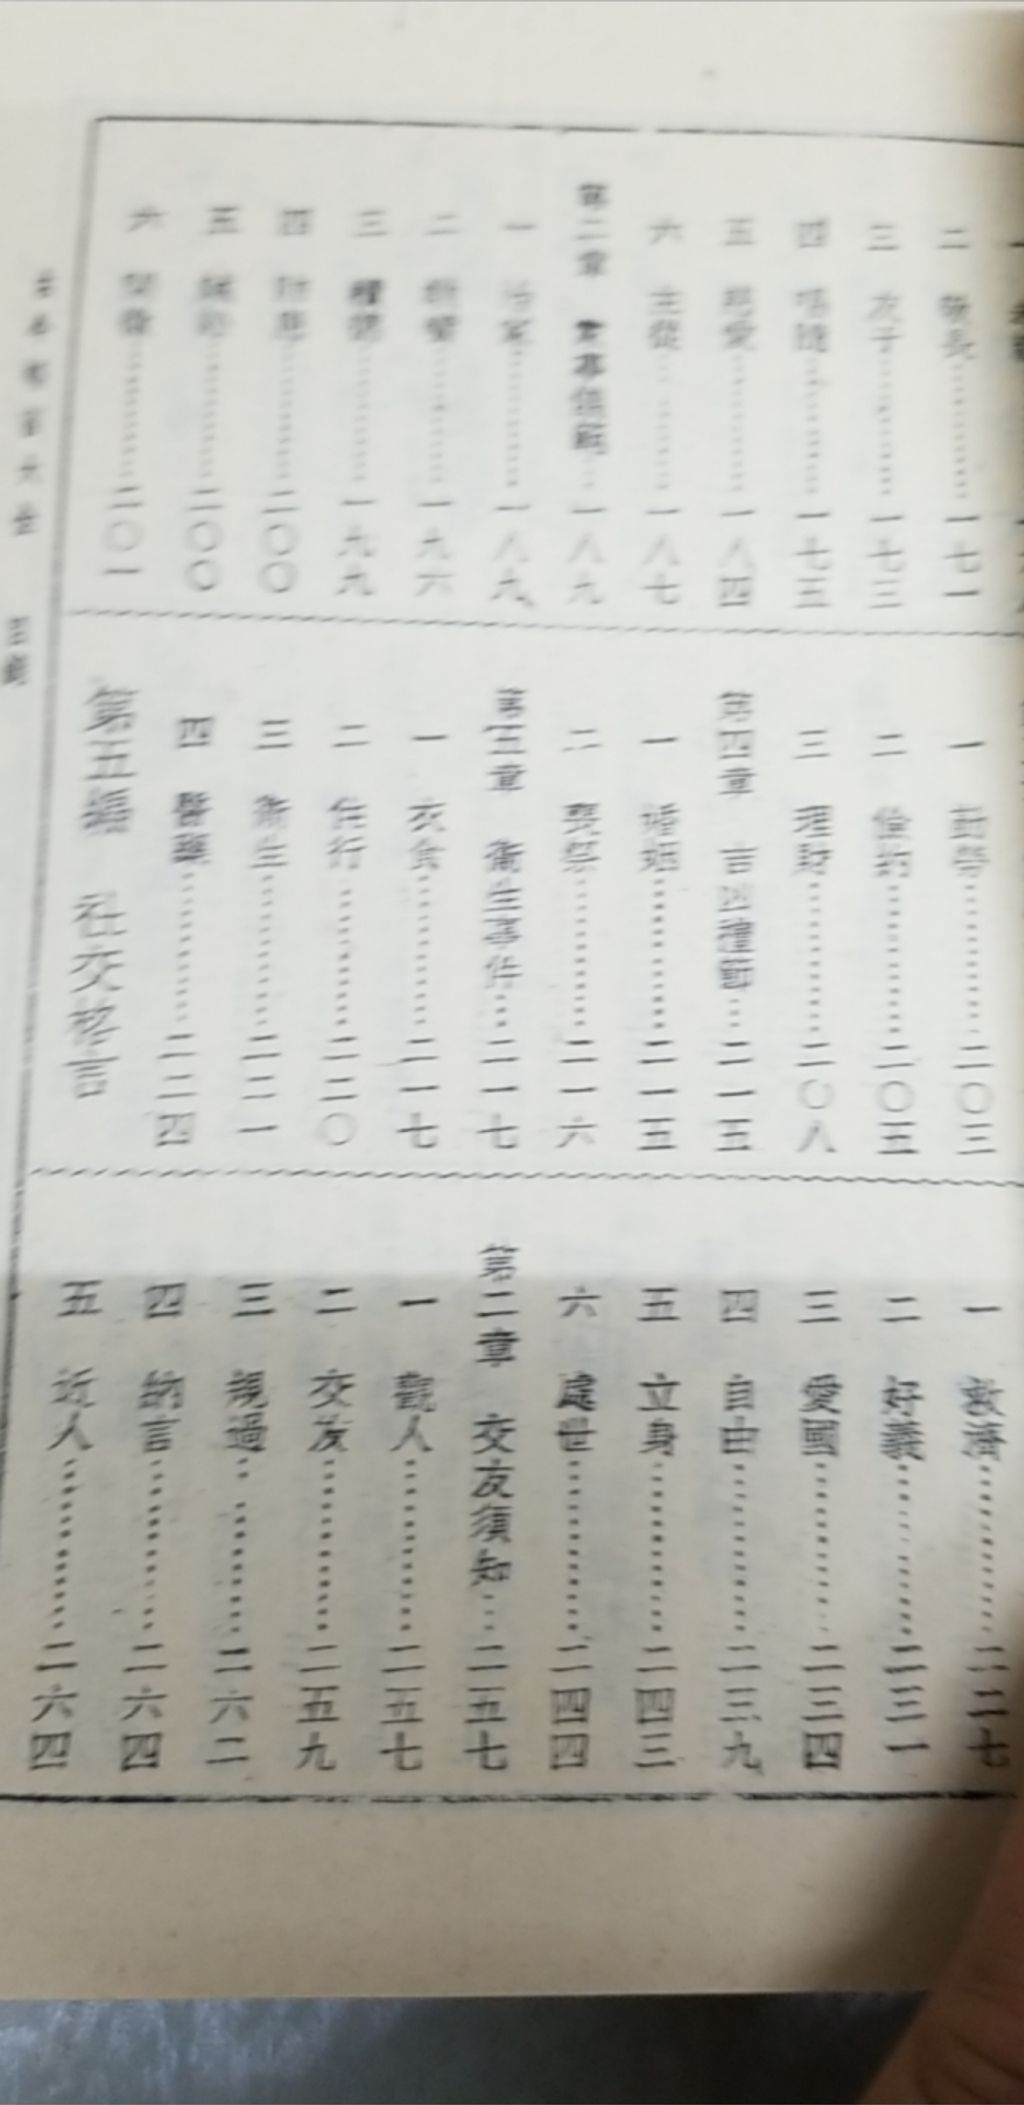 二 敬長…………一七一
三 夫子…………一七三
四 唱隨…………一七三
五 慈愛…………一八四
六 主從…………一八七
第二章…一八九
一 治家…………一八九
二…………一九六
三…………一九九
四…………二〇〇
五…………二〇〇
六…………二〇一
一 勤勞…………二〇三
二 儉約…………二〇五
三 理財…………二〇八
第四章 吉凶禮節…二一五
一 婚姻…………二一五
二 喪祭…………二一六
第五章 衛生事件…二一七
一 衣食…………二一七
二 住行…………二二〇
三 衛生…………二二一
四 醫藥…………二二四
第五編 社交格言
一 救濟…………二二七
二 好義…………二三一
三 愛國…………二三四
四 自由…………二三九
五 立身…………二四三
六 處世…………二四四
第二章 交友須知…二五七
一 觀人…………二五七
二 交友…………二五九
三 規過…………二六二
四 納言…………二六四
五 近人…………二六四
目錄